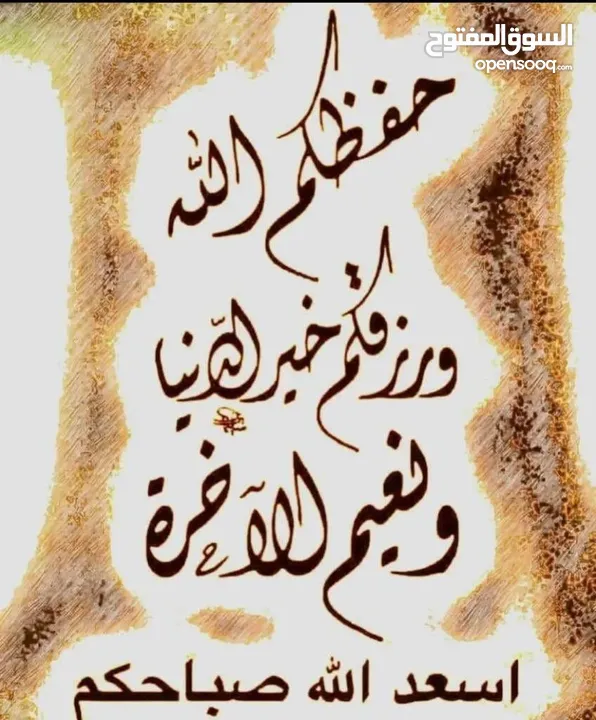 السوق المفتوح
opensooq.com
حفظكم الله
ورزقكم خير الدّنيا
ونعيم الآخرة
اسعد الله صباحكم